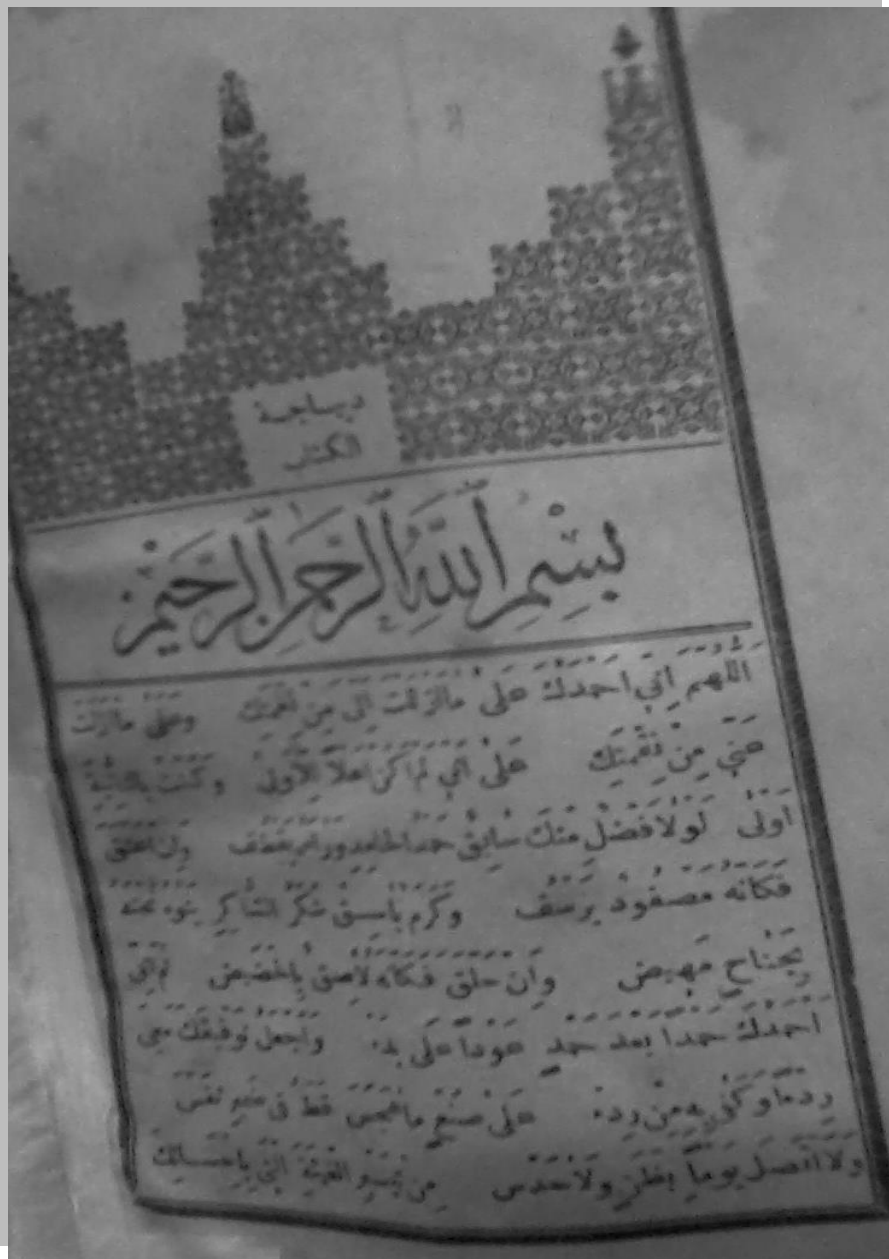 ديباجة
الكتاب
بِسْمِ ٱللَّهِ ٱلرَّحْمَٰنِ ٱلرَّحِيمِ
اَللَّهُمَّ اِنّي اَحْمَدُكَ عَلَى مَا اَزْلَلْتَ اِلَىَّ مِنْ نِعْمَتِكَ وَعَلَى مَا اَزَلْتَ
عَنّي مِنْ نِقْمَتِكَ عَلَى اَنّي لَمْ اَكُنْ اَهْلاً لِلْاُولَى وَكُنْتُ بِالثَّانِيَةِ
اَوْلَى لَوْلَا فَضْلٌ مِنْكَ سَابِقٌ حَمْدُ الْحَامِدِ وَرَاءَهُ يَقْطِفُ وَاِنْ اَعْنَقَ
فَكَاَنَّهُ مَصْفُودٌ يَرْسُفُ وَكَرَمٌ بَاسِقٌ شُكْرُ الشَّاكِرِ يَنُوءُ تَحْتَهُ
بِجَنَاحٍ مَهِيضٍ وَاِنْ حَلَّقَ فَكَاَنَّهُ لَاصِقٌ بِالْحَضِيضِ ثُمَّ اِنّي
اَحْمَدُكَ حَمْدًا بَعْدَ حَمْدٍ عَوْدًا عَلَى بَدْءٍ وَاجْعَلْ تَوْفِيقَكَ مَعِي
رِدْءًا وَكَفَى بِهِ مِنْ رِدْءٍ عَلَى صُنْعٍ مَا هَجَسَ قَطُّ فِي ضَمِيرِ نَفْسٍ
وَلَا اتَّصَلَ يَوْمًا بِظَنٍّ وَلَا حَدْسٍ مِنْ اِحْسَانِكَ